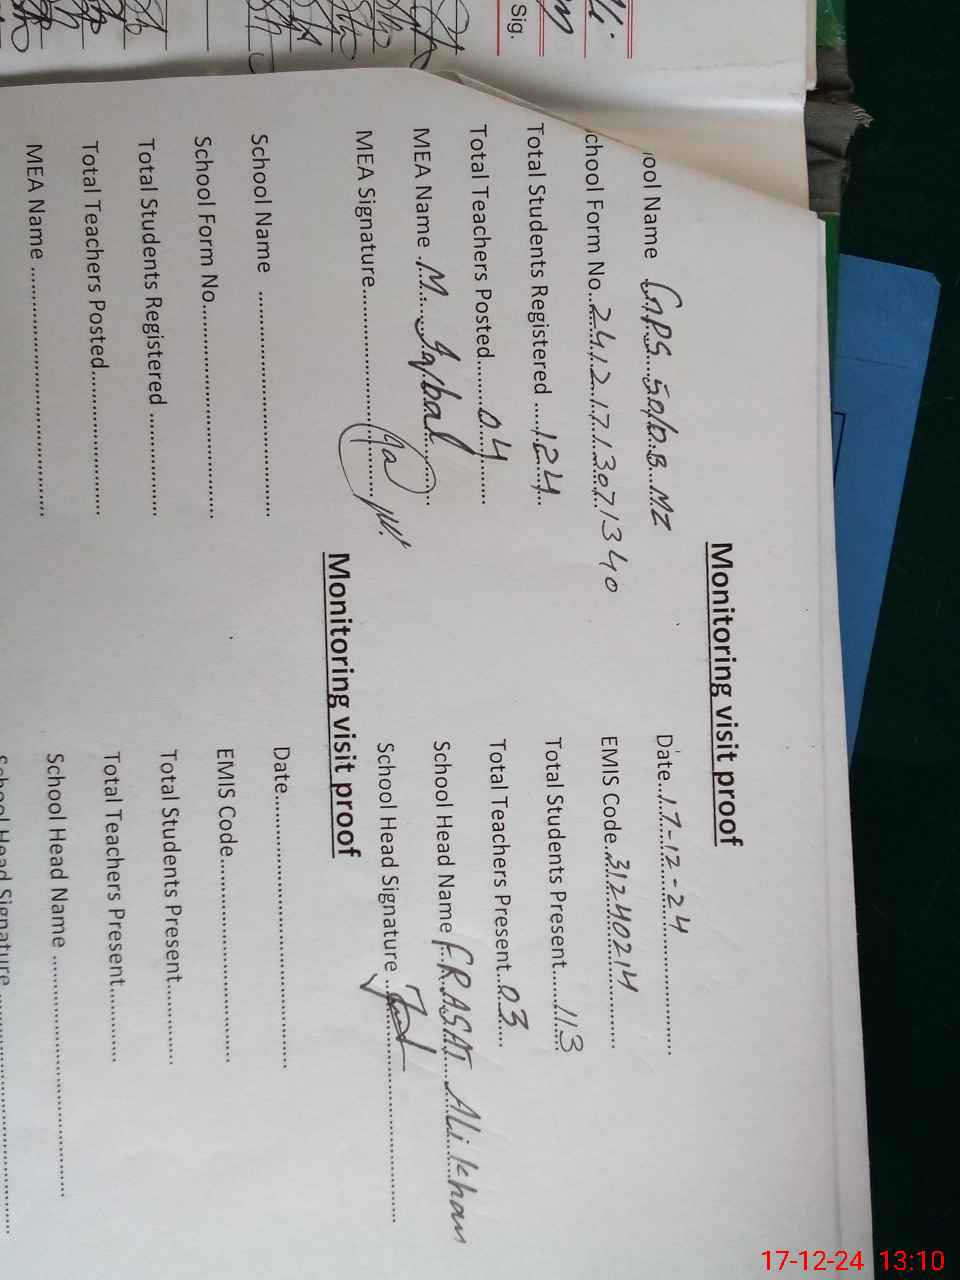 Monitoring visit proof
ool Name GPS 50/D.B MZ Date 17-12-24
chool Form No. 24121713071340 EMIS Code 31240214
Total Students Registered 124 Total Students Present 113
Total Teachers Posted 04 Total Teachers Present 03
MEA Name M. Iqbal School Head Name FRASAT Ali Khan
MEA Signature School Head Signature
Monitoring visit proof
School Name Date
School Form No. EMIS Code
Total Students Registered Total Students Present
Total Teachers Posted Total Teachers Present
MEA Name School Head Name
School Head Signature
Sig.
17-12-24 13:10